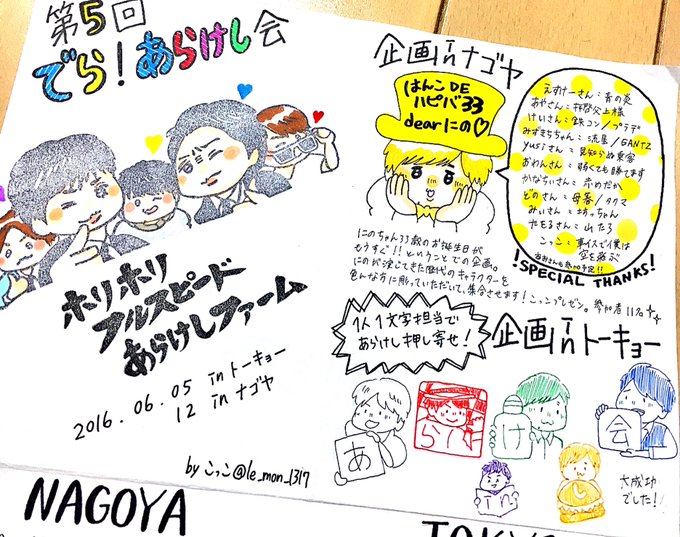 第5回
でら!あらけし会
ホリホリ
フルスピード
あらけしファーム
2016.06.05 inトーキョー
12 inナゴヤ
by こっこ@le_mon_1317
企画inナゴヤ
はんこDE
ハピバ33
dearにの♡
えすけーさん:青の炎
あやさん:拝啓父上様
けいさん:鉄コン/プラデ
みずきちちゃん:流星/GANTZ
yusiさん:見知らぬ乗客
あわんさん:弱くても勝てます
かなりぃさん:赤めだか
どのさん:母暮/タクマ
みぃさん:坊っちゃん
たもるさん:山たろ
こっこ:車イスで僕は
空を飛ぶ
!SPECIAL THANKS!
にのちゃん33歳のお誕生日が
もうすぐ!!ということでの企画。
にのが演じてきた歴代のキャラクターを
色んな方に彫っていただいて、集合させます!こっこプレゼン。参加者11名
1人1文字担当で
あらけし押し寄せ!
企画inトーキョー
あ
らし
け
会
in
大成功
でした!
NAGOYA